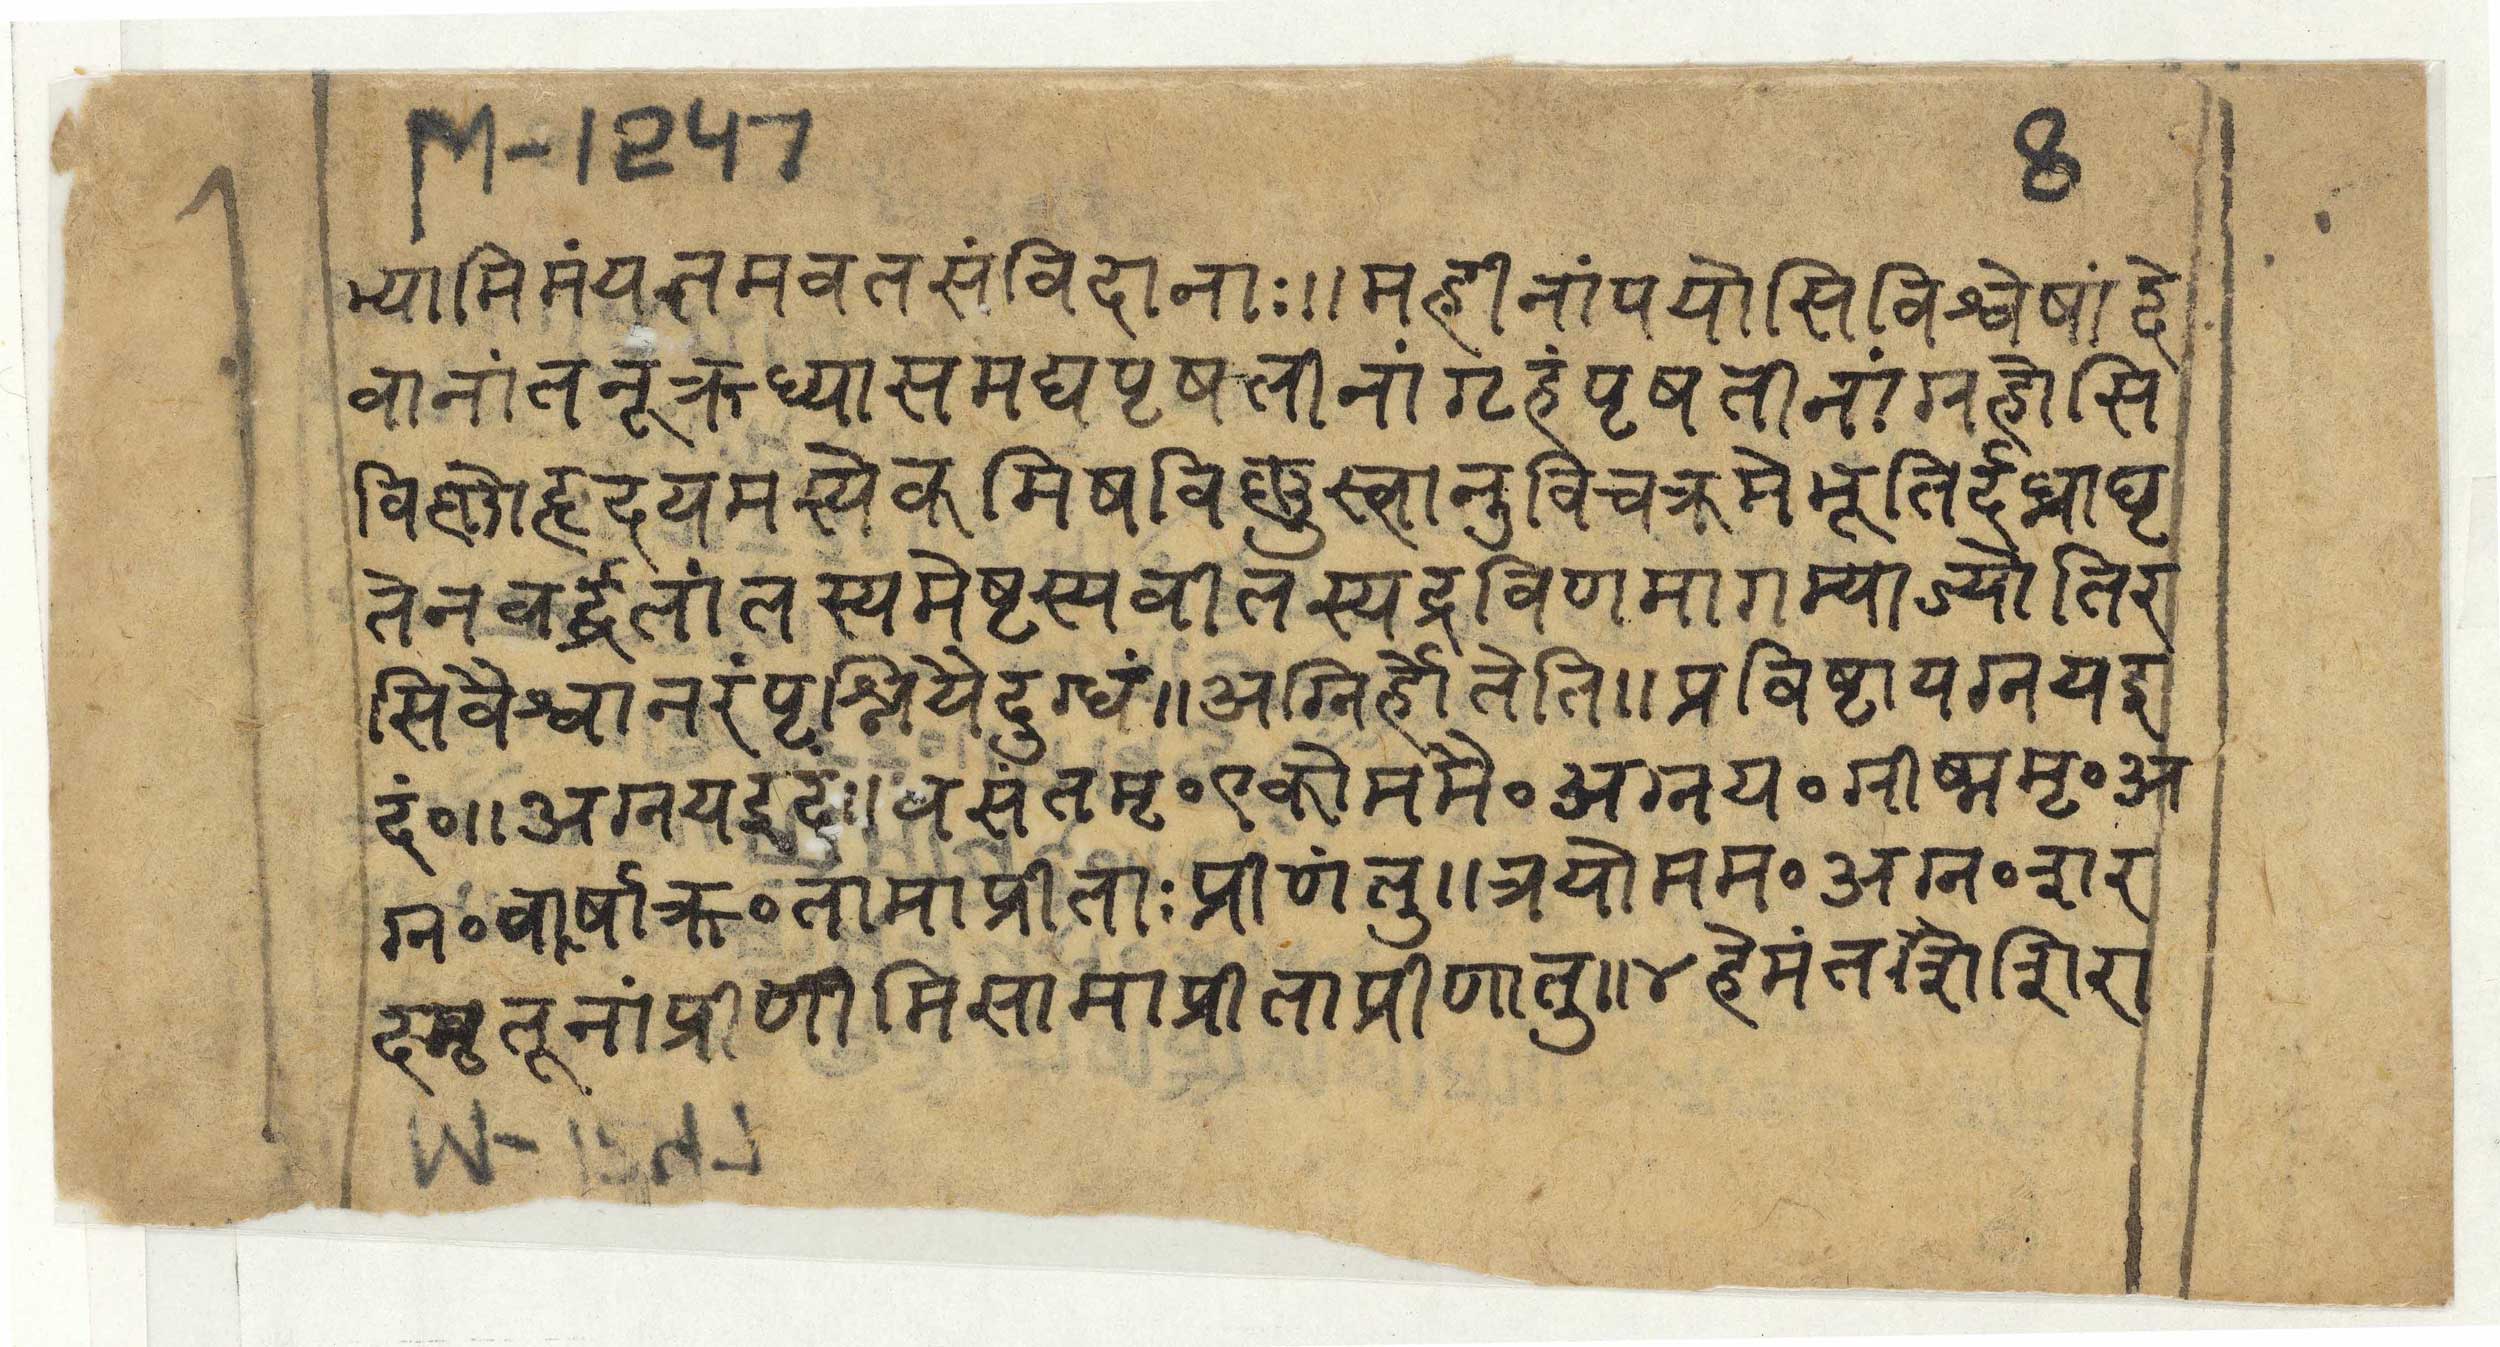 M-1247
8
म्यामिमंयत्तमवतसंविदानाः॥महीनांपयोसिविश्वेषांदे
वानांतनूऋध्यासमद्यपृषतीनांग्रहंपृषतीनांग्रहोसि
विष्णोहृदयमस्येकमिषविष्णुस्त्वानुविचक्रमेभूतिर्दध्नाघृ
तेनवर्द्धतांतस्यमेष्टस्यवीतस्यद्रविणमागम्याज्योतिर
सिवैश्वानरंपृश्नियैदुग्धं॥अग्निर्होतेति॥प्रविष्टायग्नयइ
दं॰॥अग्नयइदं॥वसंतमृ॰एकोममै॰अग्नय॰ग्रीष्ममृ॰अ
ग्न॰वार्षाऋ॰तामाप्रीताःप्रीणंतु॥त्रयोमम॰अग्न॰शर
दमृतूनांप्रीणीमिसामाप्रीताप्रीणातु॥४हेमंतशैशिरा